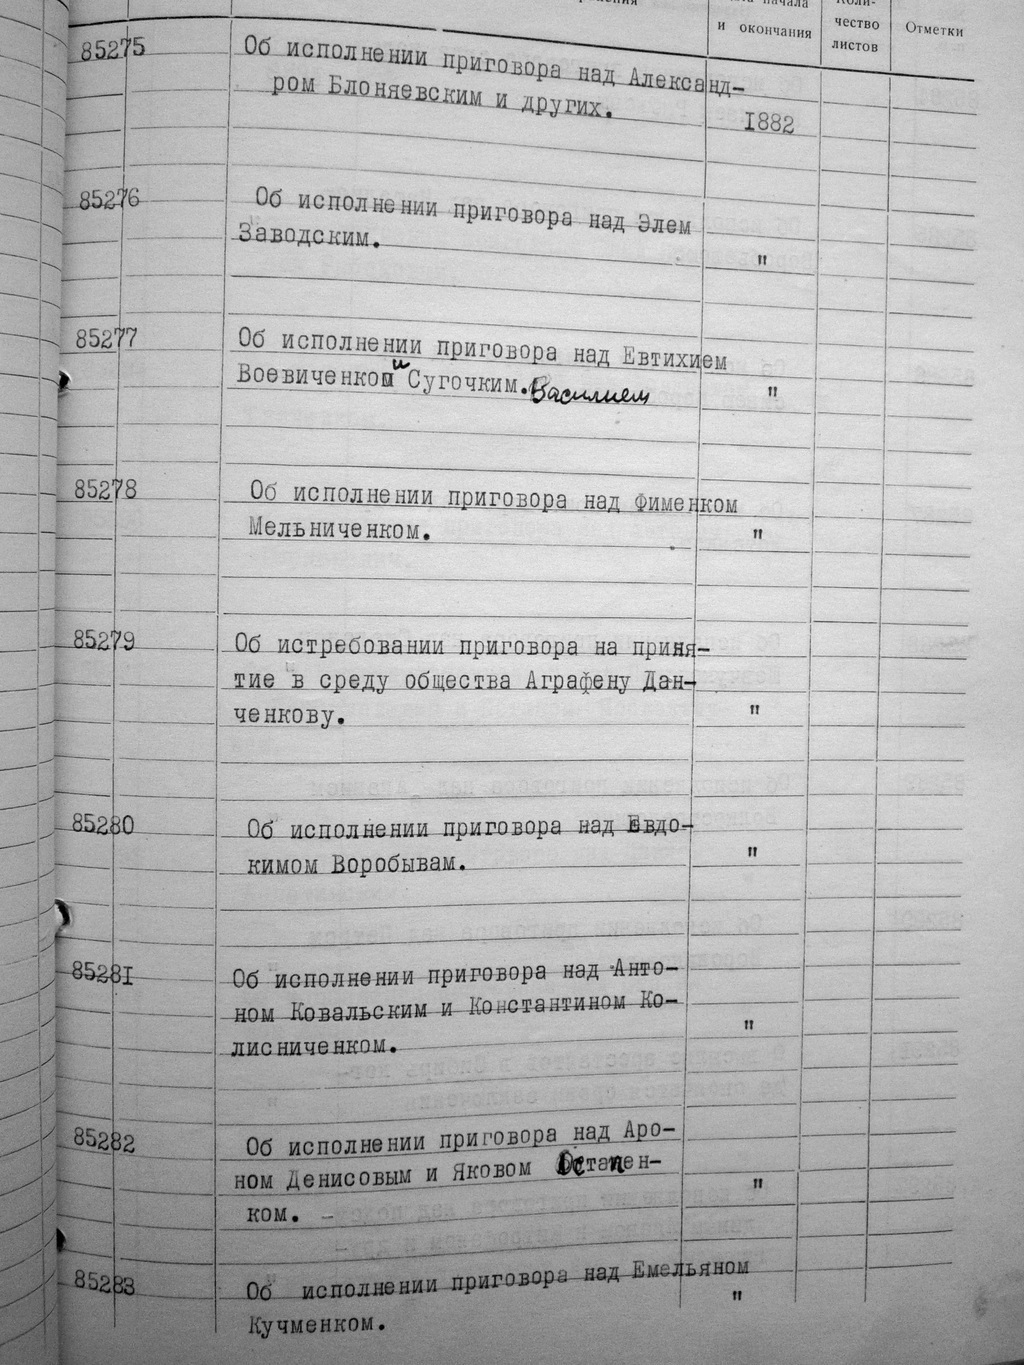 начала
Коли-
и окончания
чество
листов
Отметки
85275
Об исполнении приговора над Александ-
ром Блоняевским и других.
1882
85276
Об исполнении приговора над Элем
Заводским.
"
85277
Об исполнении приговора над Евтихием
Воевиченком и Сугочким. Василием
"
85278
Об исполнении приговора над Фименком
Мельниченком.
"
85279
Об истребовании приговора на приня-
тие в среду общества Аграфену Дан-
ченкову.
"
85280
Об исполнении приговора над Евдо-
кимом Воробывам.
"
85281
Об исполнении приговора над Анто-
ном Ковальским и Константином Ко-
лисниченком.
"
85282
Об исполнении приговора над Аро-
ном Денисовым и Яковом Остапен-
ком. –
"
85283
Об исполнении приговора над Емельяном
Кучменком.
"